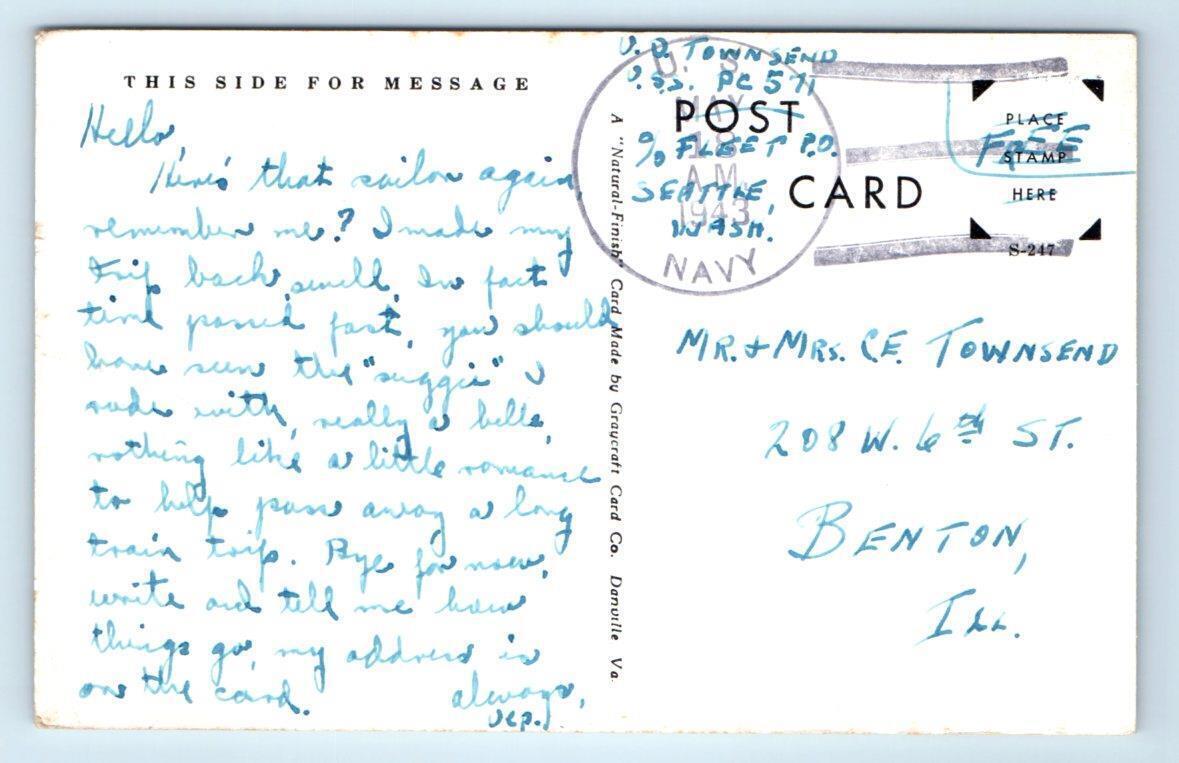 THIS SIDE FOR MESSAGE
Hello,
Here's that sailor again,
remember me? I made my
trip back swell, In fact
time passed fast, you should
have seen the "suggie" I
rode with, really a belle,
nothing like a little romance
to help pass away a long
train trip. Bye for now,
write and tell me how
things go, my address is
on the card.
always,
A "Natural-Finish" Card Made by Graycraft Card Co. Danville Va.
TOWNSEND
U.S.S. PC 571
℅ FLEET P.O.
SEATTLE,
WASH.
U. S.
MAY
18
A.M.
1943
NAVY
POST
CARD
PLACE
STAMP
HERE
FREE
S-247
MR. + MRS. C.E. TOWNSEND
208 W. 6th ST.
BENTON,
ILL.